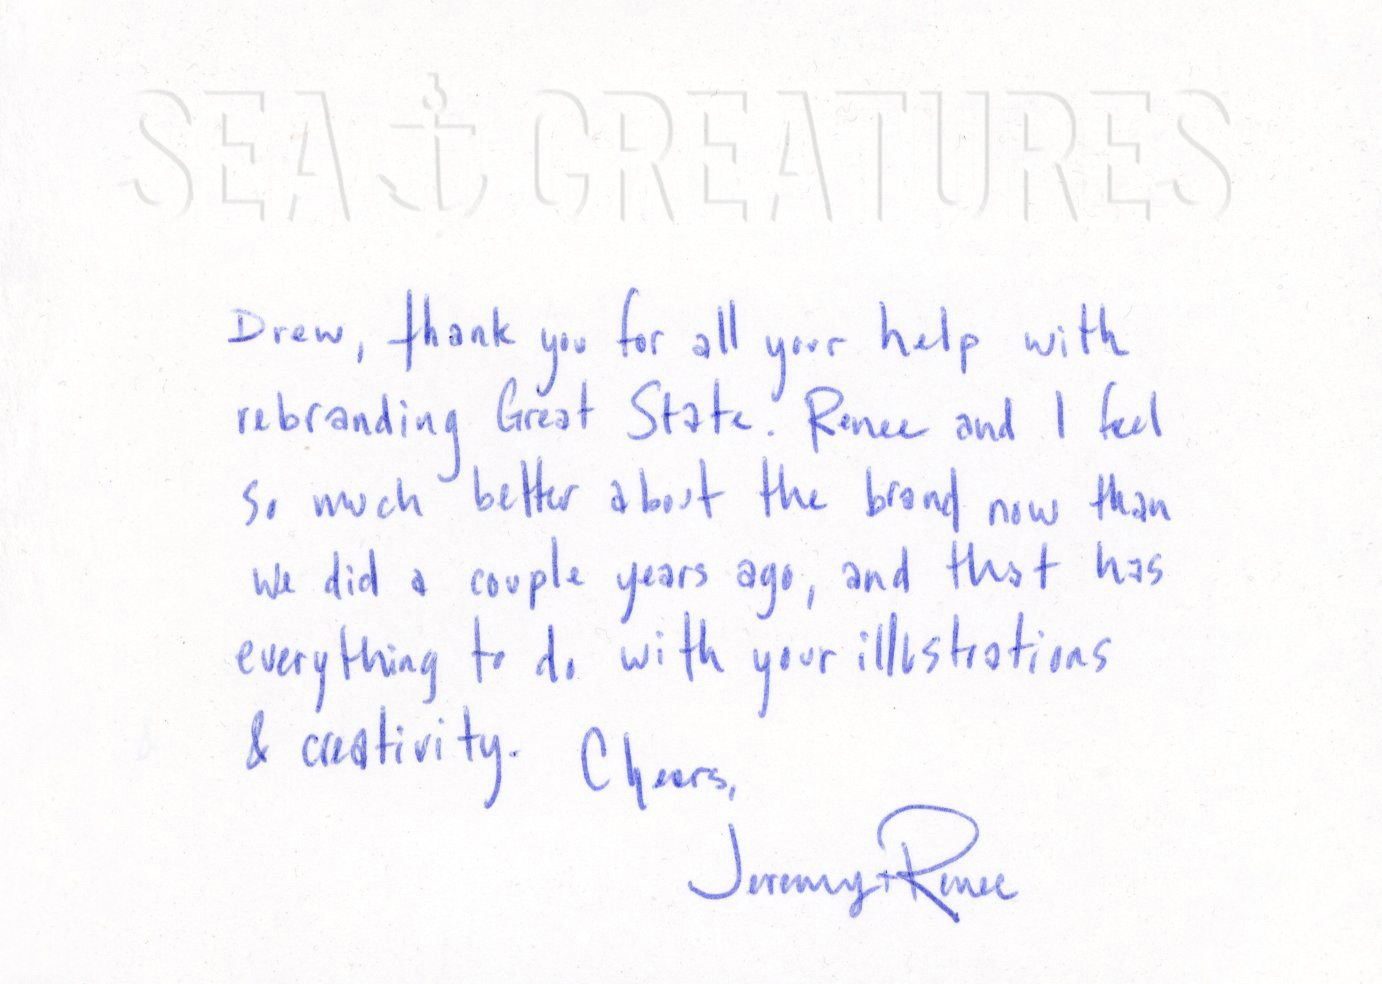 SEA CREATURES
Drew, thank you for all your help with
rebranding Great State. Renee and I feel
so much better about the brand now than
we did a couple years ago, and that has
everything to do with your illustrations
& creativity. Cheers,
Jeremy + Renee